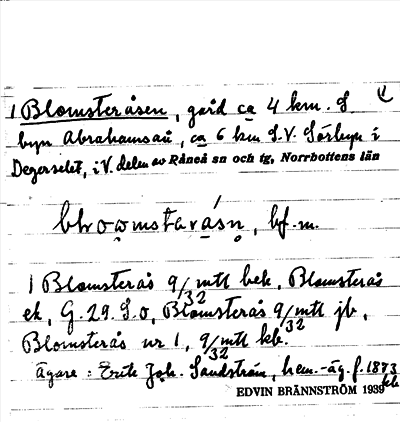 1 Blomsteråsen, gård ca 4 km. S
byn Abrahamsån, ca 6 km S.V. Sörbyn i
Degerselet, i V. delen av Råneå sn och tg, Norrbottens län
blrowmstarásn, bf. m.
1 Blomsterås 9/32 mtl bek, Blomsterås
ek, G. 29. S. o, Blomsterås 9/32 mtl jb,
Blomsterås nr 1, 9/32 mtl kb.
Ägare: Erik Joh. Sandström, hem.-äg. f. 1873
EDVIN BRÄNNSTRÖM 1939